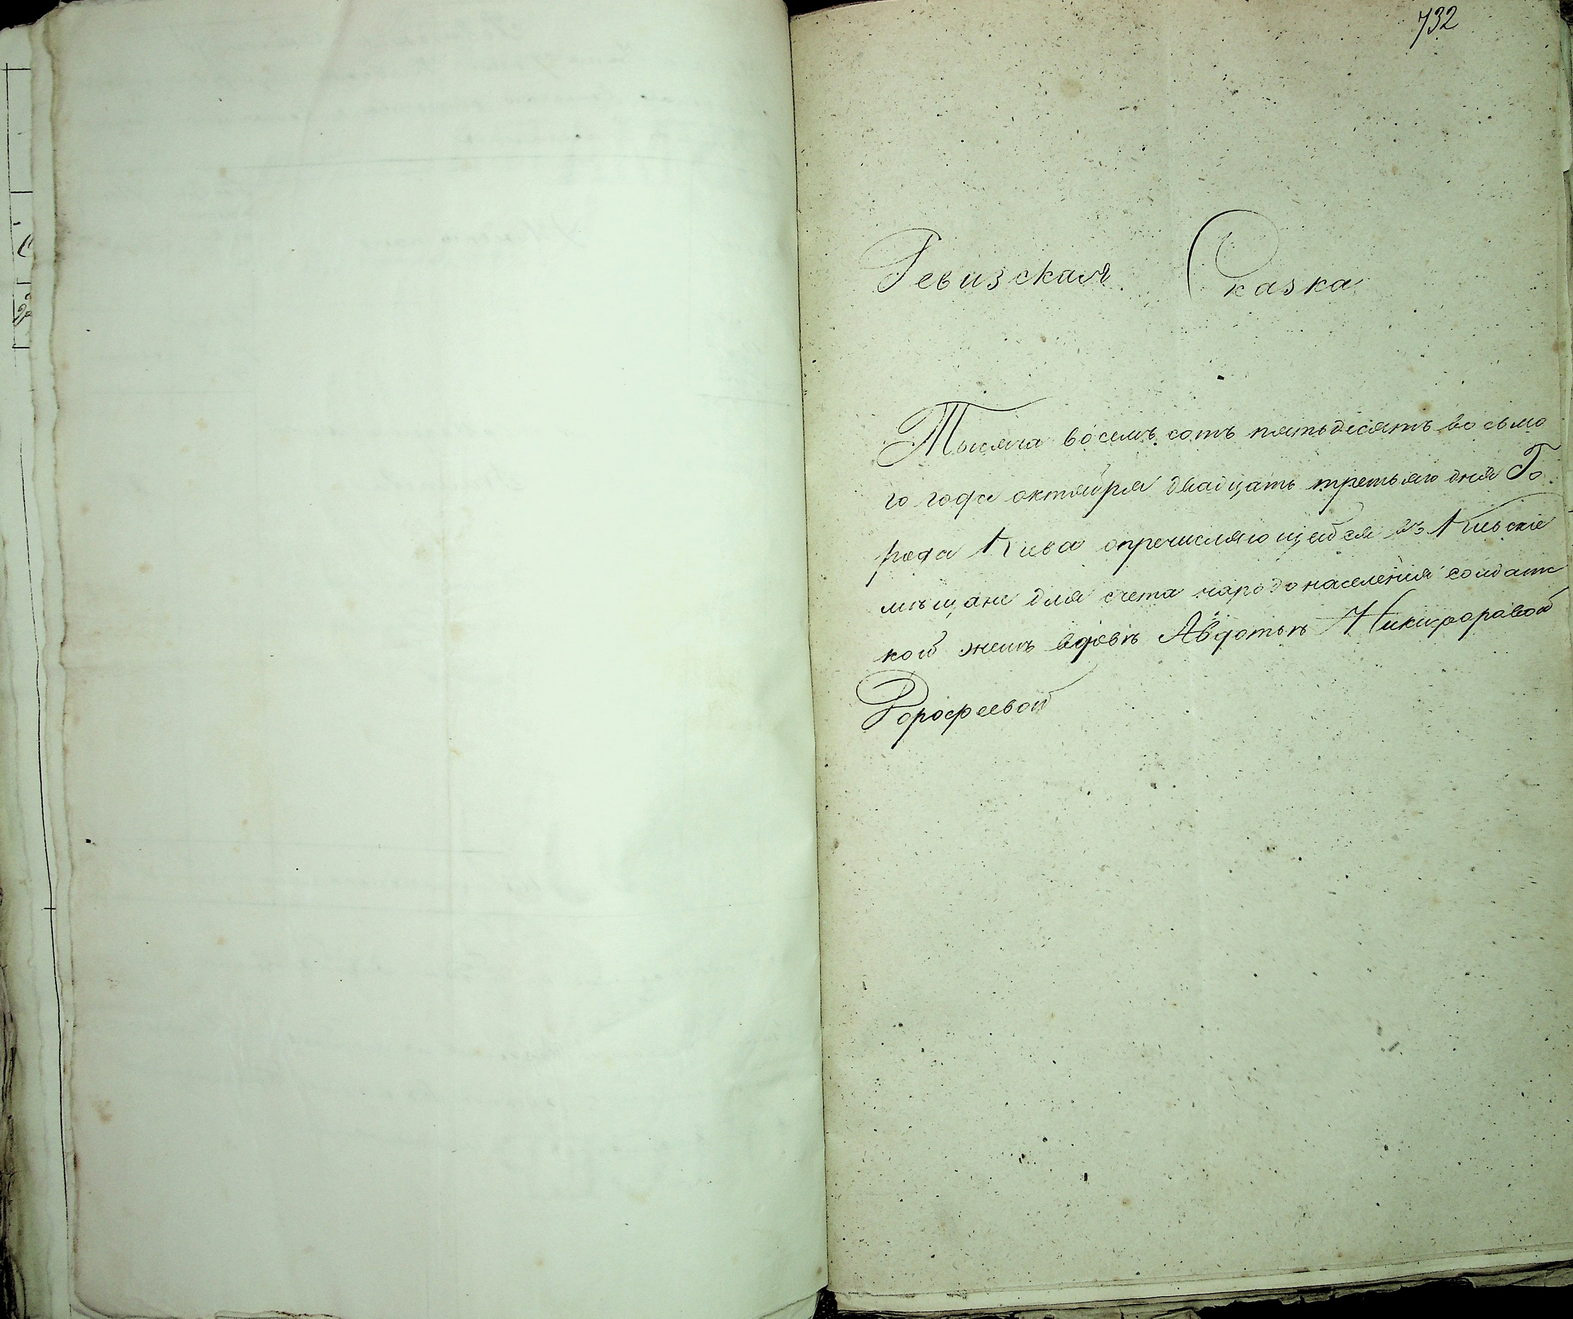 732
Ревизская Сказка
Тысяча восемь сотъ пятьдесятъ восьмо
го года октября двадцать третьяго дня Го
рода Кіева опречисляющейся въ Кіевскіе
мѣщане для счета народонаселенія солдатс
кой женѣ вдовѣ Авдотьѣ Никифоровой